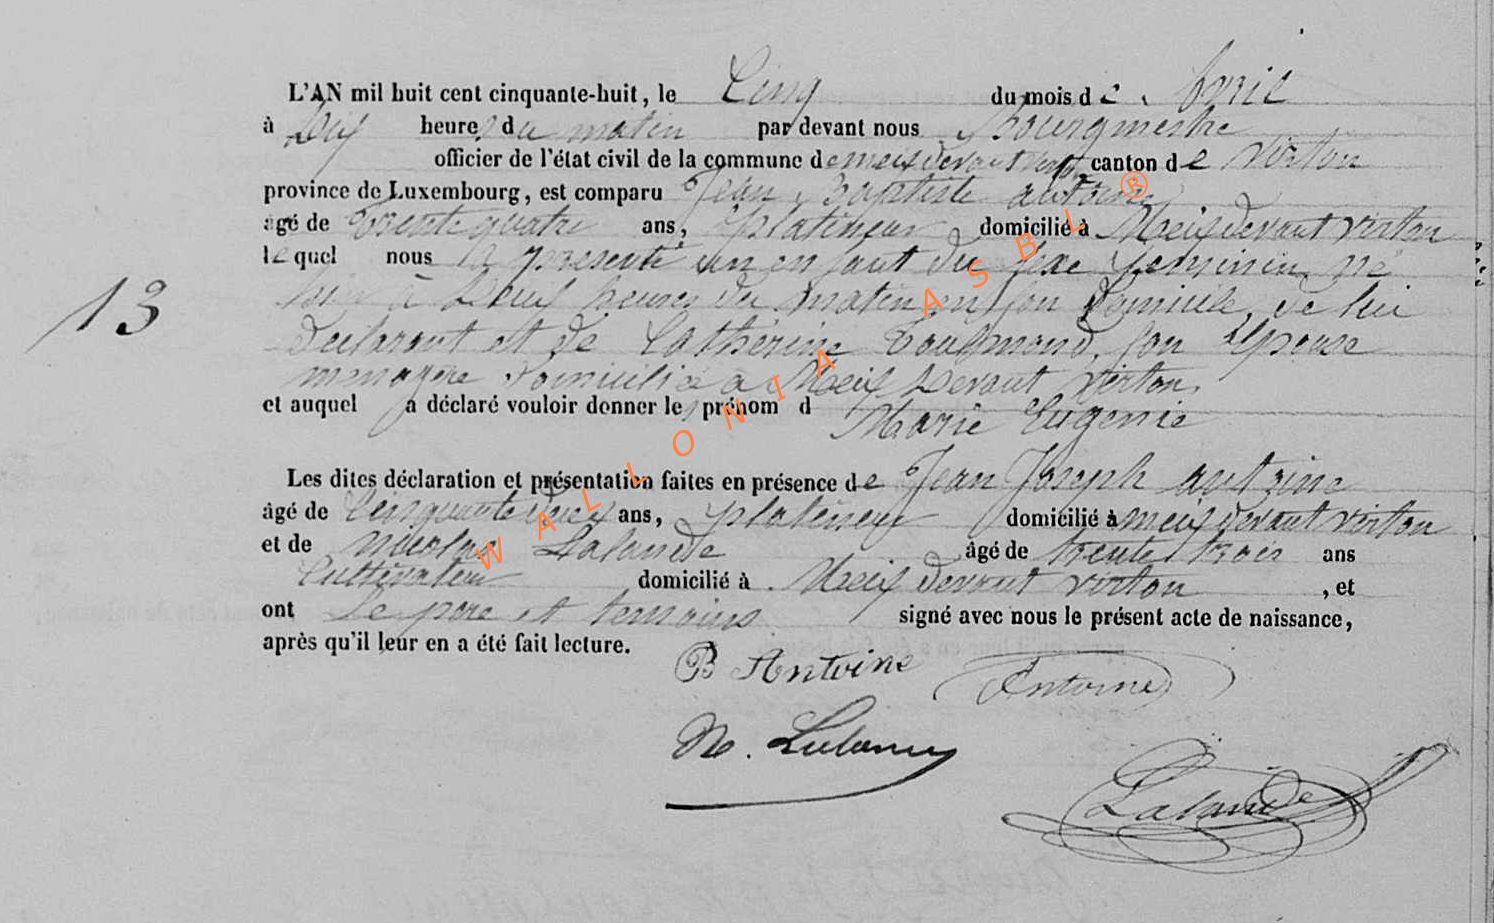 L'AN mil huit cent cinquante-huit, le Cinq du mois de Avril
à Dix heures du matin par devant nous Bourgmestre
officier de l'état civil de la commune de meix devant virton canton de virton
province de Luxembourg, est comparu Jean Baptiste antoine
agé de trente quatre ans, platineur domicilié à Meix devant virton
lequel nous a présenté un enfant du sexe feminin né
à heures du matin en son Domicile, de lui
Declarant et de Cathérine son Epouse
menagere domicilié a Meix Devant virton
et auquel a déclaré vouloir donner le prénom d Marie Eugenie
13
Les dites déclaration et présentation faites en présence de Jean Joseph antoine
âgé de ans, platineur domicilié à meix devant virton
et de nicolas Lalande âgé de trente trois ans
Cultivateur domicilié à Meix devant virton , et
ont le pere et temoins signé avec nous le présent acte de naissance,
après qu'il leur en a été fait lecture.
B Antoine Antoine
N. Lalande
Lalande
WALLONIA ASBL ®